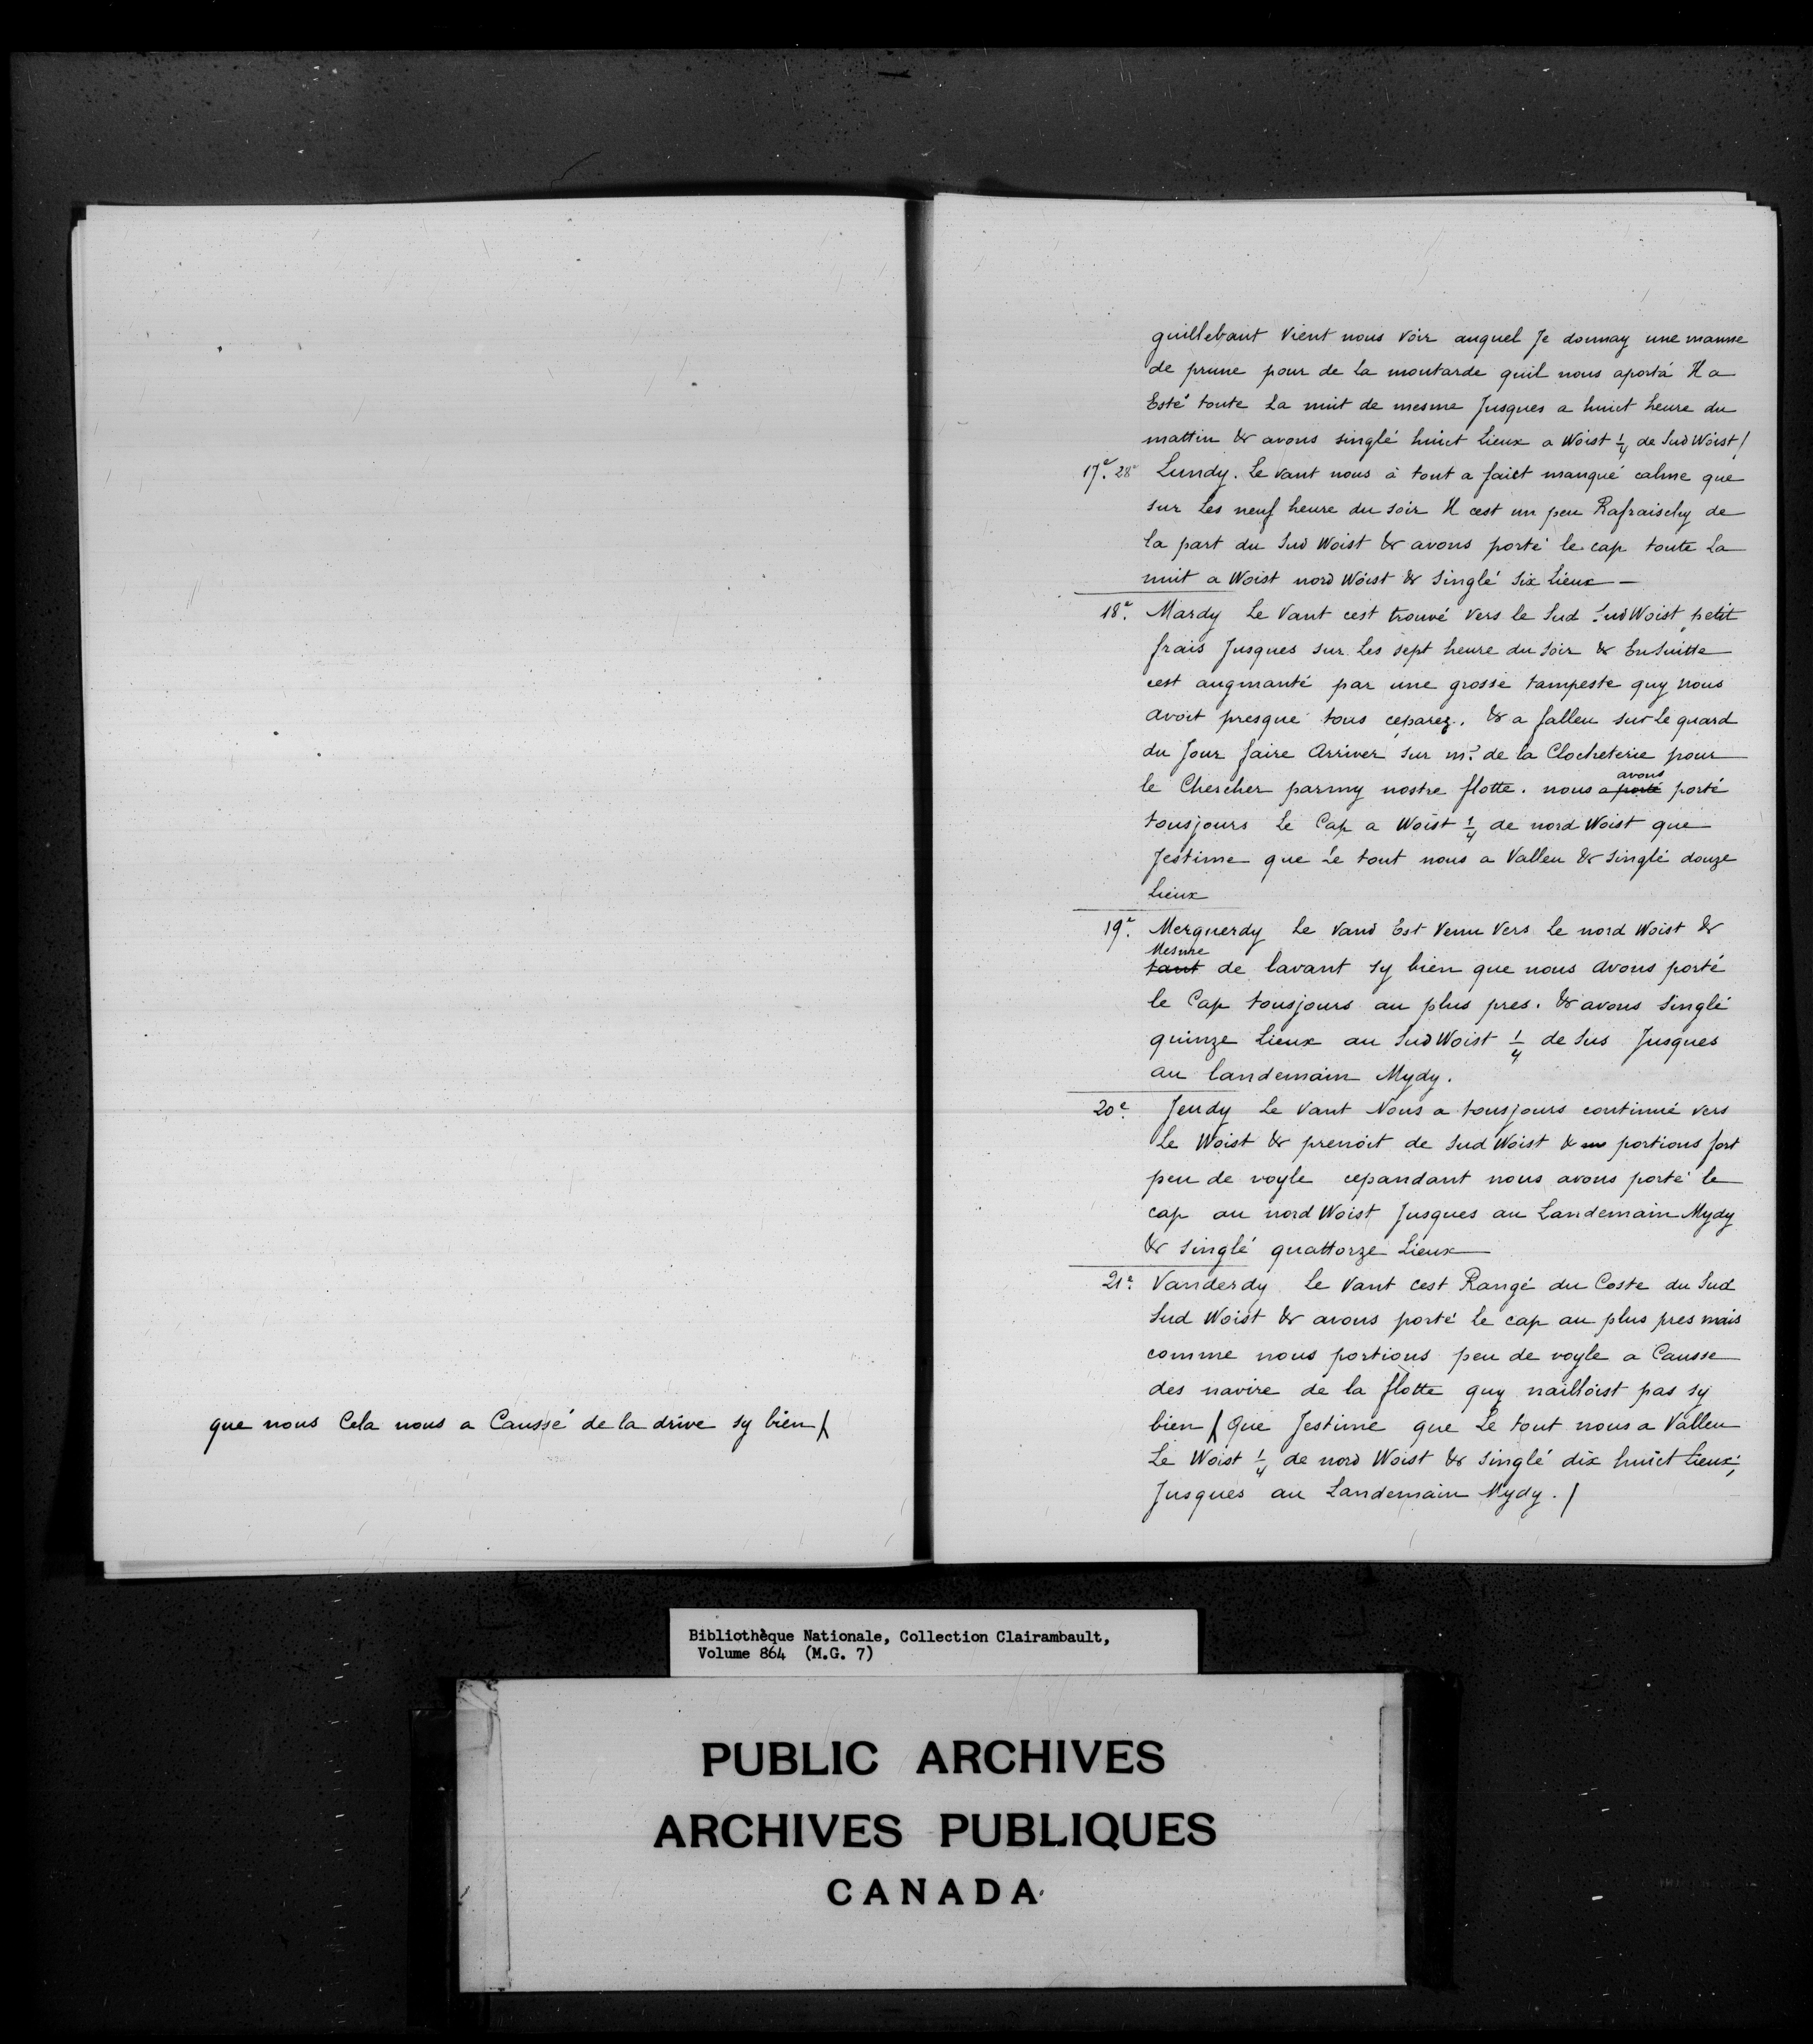 que nous Cela nous a Caussé de la drive sy bien /
guillebaut Vient nous voir auquel Je donnay une manne
de prune pour de la moutarde quil nous aporta Il a
Esté toute La nuit de mesme Jusques a huict heure du
mattin & avons singlé huict Lieux a Woist 1/4 de Sud Woist /
17e. 28e Lundy. Le vant nous à tout a faict manqué calme que
sur Les neuf heure du soir Il cest un peu Rafraischy de
la part du Sud Woist & avons porté le cap toute La
nuit a Woist nord Woist & Singlé Six Lieux —
18e. Mardy Le Vant cest trouvé Vers le Sud Sud Woist petit
frais Jusques sur Les sept heure du Soir & EnSuitte
cest augmanté par une grosse tampeste quy nous
avoit presque tous ceparez. & a falleu sur Le quard
du Jour faire Arriver sur mr. de la Clocheterie pour
le Chercher parmy nostre flotte. nous a porté avons porté
tousjours Le Cap a Woist 1/4 de nord Woist que
Jestime que Le tout nous a Valleu & Singlé douze
Lieux
19e. Merquerdy Le Vand Est Venu Vers le nord Woist &
tant Mesme de lavant sy bien que nous avons porté
le Cap tousjours au plus pres. & avons singlé
quinze Lieux au Sud Woist 1/4 de Sus Jusques
au landemain Mydy.
20e. Jeudy Le Vant Nous a tousjours continué vers
Le Woist & prenoit de Sud Woist & portions fort
peu de voyle cepandant nous avons porté le
cap au nord Woist Jusques au Landemain Mydy
& Singlé quattorze Lieux
21e. Vanderdy Le Vant cest Rangé du Coste du Sud
Sud Woist & avons porté le cap au plus pres mais
comme nous portions peu de voyle a Causse
des navire de la flotte quy nailloist pas sy
bien / Que Jestime que Le tout nous a Valleu
Le Woist 1/4 de nord Woist & Singlé dix huict Lieux
Jusques au Landemain Mydy. /
Bibliothèque Nationale, Collection Clairambault,
Volume 864 (M.G. 7)
PUBLIC ARCHIVES
ARCHIVES PUBLIQUES
CANADA